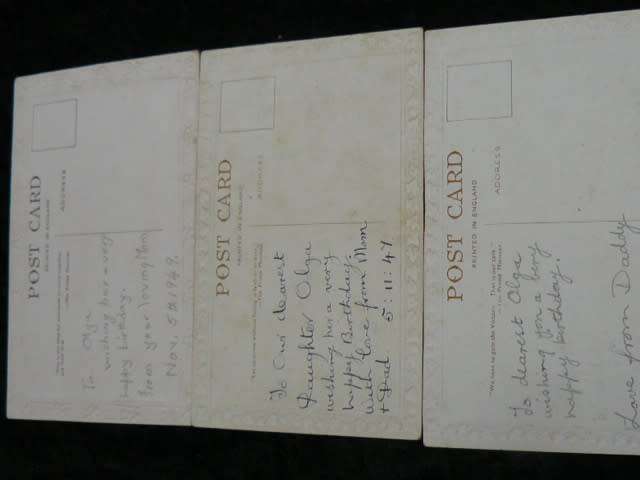 POST CARD
PRINTED IN ENGLAND
ADDRESS
To Olga
wishing her a very
happy birthday.
from your loving Mom
Nov. 5th 1949.
POST CARD
PRINTED IN ENGLAND
ADDRESS
To Our dearest
Daughter Olga
wishing her a very
happy Birthday.
With love from Mom
+ Dad 5:11:47
POST CARD
PRINTED IN ENGLAND
ADDRESS
To dearest Olga
wishing you a very
happy birthday.
Love from Daddy